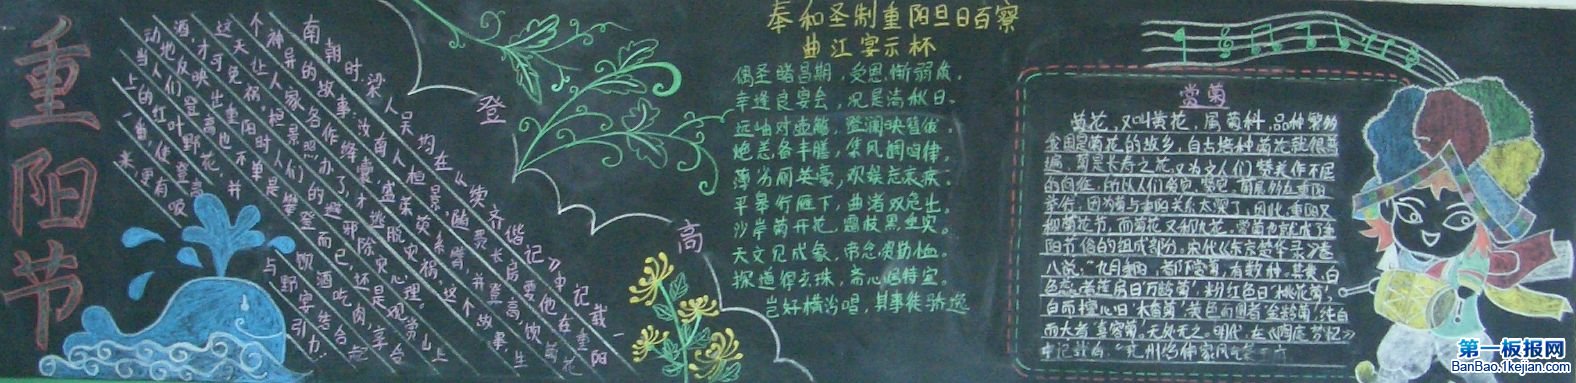 重阳节
南朝时,梁人吴均在《续齐谐记》中记载一
个神异的故事:汝南人桓景随费长房要他在重阳
这天让人家各作绛囊,盛茱萸系臂,并登高饮菊花
酒,才可免祸。桓景照办了,才逃脱灾祸。这个故事生
动地反映出重阳时人们的避邪除灾心理。
当人们登高也不单是攀登而已,还是观赏山
上的红叶野花,并饮酒吃肉,享
与野宴结合起
来,使登高更有吸引力.
登
高
奉和圣制重阳旦日百寮
曲江宴示杯
偶圣睹昌期,受恩惭弱质。
幸逢良宴会,况是清秋日。
远岫对壶觞,澄澜映簪
炮羔备丰膳,集凤调鸣律。
薄劣厕英豪,欢娱忘衰疾。
平皋行雁下,曲渚双凫出。
沙岸菊开花,霜枝果垂实。
天文见成象,帝念资勤恤。
探道得玄珠,斋心居特室。
岂如横汾唱,其事徒骄逸
赏菊
菊花,又叫黄花,属菊科,品种繁多
是菊花的故乡,自古培种菊花就很普
遍。菊是长寿之花,又为文人们赞美作不屈
举行,因为菊与重阳关系太深了,因此,重阳又
称菊花节,而菊花又称九花。赏菊也就成了重
阳节俗的组成部分。宋代《东京梦华录》卷
八说:“九月重阳,都下赏菊,有数种。其黄、白
色蕊者莲房曰‘万龄菊’,粉红色曰‘桃花菊’,
白而檀心曰‘木香菊’,黄色而圆者‘金龄菊’,纯白
而大者‘喜容菊’。无处无之。”明代,在《陶庵梦忆》
中记载
第一板报网
BanBao.1kejian.com